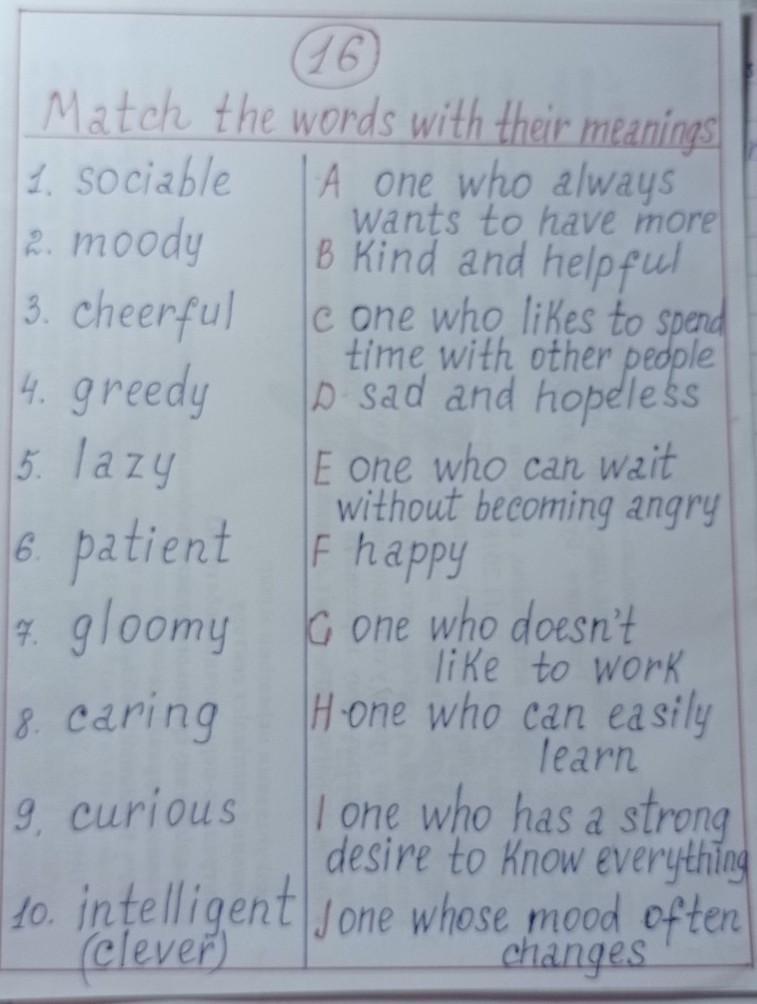 16
Match the words with their meanings
1. sociable
2. moody
3. cheerful
4. greedy
5. lazy
6. patient
7. gloomy
8. caring
9. curious
10. intelligent
(clever)
A one who always
wants to have more
B Kind and helpful
C one who likes to spend
time with other people
D sad and hopeless
E one who can wait
without becoming angry
F happy
G one who doesn't
like to work
H one who can easily
learn
I one who has a strong
desire to know everything
J one whose mood often
changes